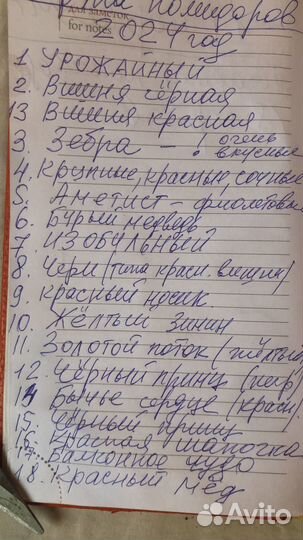 для заметок
for notes
помидоров
2024 год
1 УРОЖАЙНЫЙ
2. Вишня чёрная
13 Вишня красная
3. Зебра — очень
вкусные
4. Крупные, красные, сочные
5. Аметист — фиолетовые
6. Бурый медведь
7. ИЗОБИЛЬНЫЙ
8. Чери (типа красн. вишни)
9. Красный носик
10. Жёлтый Зинин
11. Золотой поток (жёлтый
12. Чёрный принц
14 Бычье сердце (красн
15. Чёрный принц
16. Красная шапочка
17. Балконное чудо
18. Красный мёд
Avito